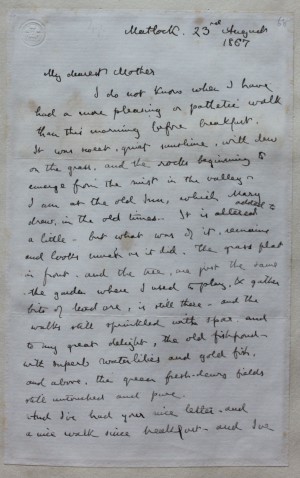 Matlock. 23rd August
1867
My dearest Mother
I do not know when I have
had a more pleasing or pathetic walk
than this morning before breakfast.
It was sweet, quiet sunshine, with dew
on the grass, and the rocks beginning to
emerge from the mist in the valley -
I am at the old Inn, which Mary
drew, in the old times. It is altered
added to
a little - but what was of it, remains
and looks much as it did. The grass plat
in front - and the tree, are just the same
the garden where I used to play, & gather
bits of lead ore, is still there - and the
walks still sprinkled with spar - and
to my great delight, the old fishpond -
with superb waterlilies and gold fish,
and above, the green fresh-dewy fields
still untouched and pure.
And I've had your nice letter - and
a nice walk since breakfast - and I've